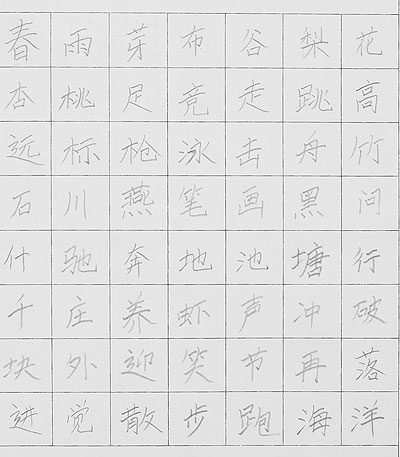 春雨芽布谷梨花
杏桃足竞走跳高
远标枪泳击舟竹
石川燕笔画黑问
什驰奔地池塘行
千庄养虾声冲破
块外迎笑节再落
进觉散步跑海洋